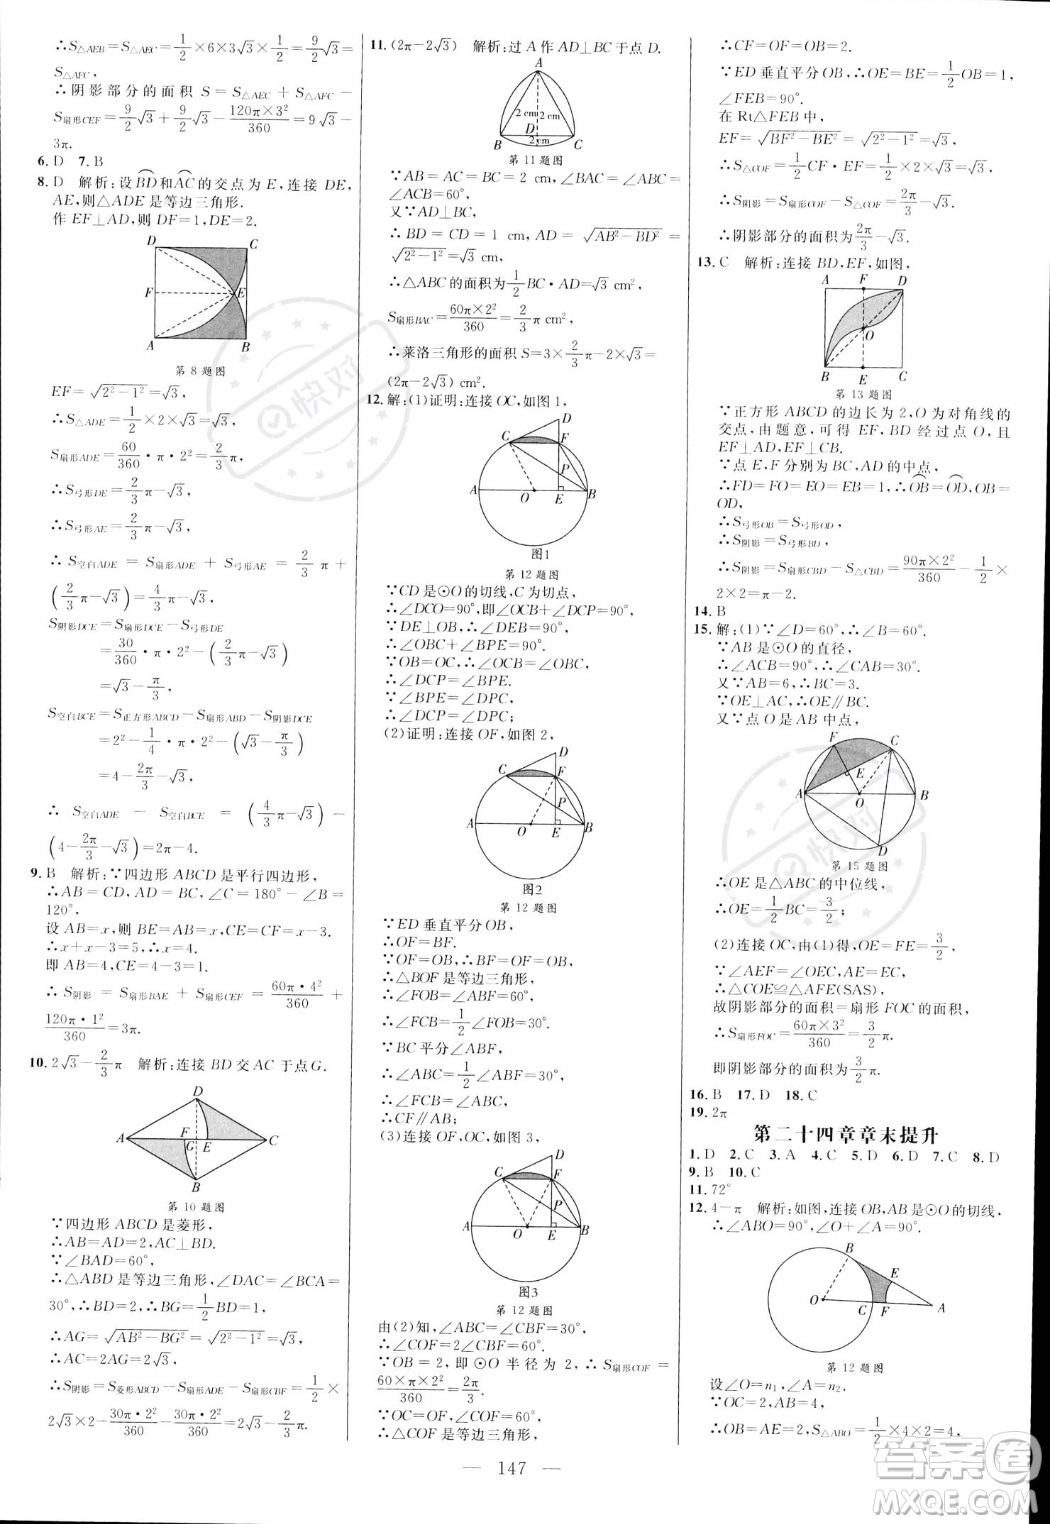 ∴S△AEB=S△AEC=1/2×6×3√3=9/2√3=
S△AFC,
∴阴影部分的面积 S=S△AEC+S△AFC-
S扇形CEF=9/2√3+9/2√3-120π×3²/360=9√3-
3π.
6. D 7. B
8. D 解析:设BD和AC的交点为E,连接DE,
AE,则△ADE是等边三角形.
作EF⊥AD,则DF=1,DE=2.
D C
F E
A B
第8题图
EF=√2²-1²=√3,
∴S△ADE=1/2×2×√3=√3,
S扇形ADE=60/360·π·2²=2/3π,
∴S弓形DE=2/3π-√3,
∴S弓形AE=2/3π-√3,
∴S空白ADE=S扇形ADE+S弓形AE=2/3π+
(2/3π-√3)=4/3π-√3,
S阴影DCE=S扇形DCE-S弓形DE
=30/360·π·2²-(2/3π-√3)
=√3-π/3,
S空白BCE=S正方形ABCD-S扇形ABD-S阴影DCE
=2²-1/4·π·2²-(√3-π/3)
=4-2π/3-√3,
∴S空白ADE-S空白BCE=(4/3π-√3)
-(4-2π/3-√3)=2π-4.
9. B 解析:∵四边形ABCD是平行四边形,
∴AB=CD,AD=BC,∠C=180°-∠B=
120°,
设AB=x,则BE=AB=x,CE=CF=x-3.
∴x+x-3=5,∴x=4.
即AB=4,CE=x-3=1.
∴S阴影=S扇形BAE+S扇形CEF=60π·4²/360+
120π·1²/360=3π.
10. 2√3-2/3π 解析:连接BD交AC于点G.
D
A F G E C
B
第10题图
∵四边形ABCD是菱形,
∴AB=AD=2,AC⊥BD.
∵∠BAD=60°,
∴△ABD是等边三角形,∠DAC=∠BCA=
30°,∴BD=2,∴BG=1/2BD=1,
∴AG=√AB²-BG²=√2²-1²=√3,
∴AC=2AG=2√3,
∴S阴影=S菱形ABCD-S扇形ADE-S扇形CBF=1/2×
2√3×2-30π·2²/360-30π·2²/360=2√3-2/3π.
11. (2π-2√3) 解析:过A作AD⊥BC于点D.
A
2 cm 2 cm
D
B 2 cm C
第11题图
∵AB=AC=BC=2 cm,∠BAC=∠ABC=
∠ACB=60°,
又∵AD⊥BC,
∴BD=CD=1 cm,AD=√AB²-BD²=
√2²-1²=√3,
∴△ABC的面积为1/2BC·AD=√3 cm²,
S扇形BAC=60π×2²/360=2/3π cm²,
∴莱洛三角形的面积S=3×2/3π-2×√3=
(2π-2√3) cm².
12. 解:(1)证明:连接OC,如图1,
D
C F
P
A O E B
图1
第12题图
∵CD是⊙O的切线,C为切点,
∴∠DCO=90°,即∠OCB+∠DCP=90°,
∵DE⊥OB,∴∠DEB=90°,
∴∠OBC+∠BPE=90°,
∵OB=OC,∴∠OCB=∠OBC,
∴∠DCP=∠BPE.
∵∠BPE=∠DPC,
∴∠DCP=∠DPC;
(2)证明:连接OF,如图2,
D
C F
P
A O E B
图2
第12题图
∵ED垂直平分OB,
∴OF=BF.
∵OF=OB,∴BF=OF=OB,
∴△BOF是等边三角形,
∴∠FOB=∠ABF=60°,
∴∠FCB=1/2∠FOB=30°.
∵BC平分∠ABF,
∴∠ABC=1/2∠ABF=30°,
∴∠FCB=∠ABC,
∴CF∥AB;
(3)连接OF,OC,如图3,
D
C F
P
A O E B
图3
第12题图
由(2)知,∠ABC=∠CBF=30°,
∴∠COF=2∠CBF=60°.
∵OB=2,即⊙O半径为2,∴S扇形COF=
60×π×2²/360=2/3π,
∵OC=OF,∠COF=60°,
∴△COF是等边三角形,
∴CF=OF=OB=2.
∵ED垂直平分OB,∴OE=BE=1/2OB=1,
∠FEB=90°.
在Rt△FEB中,
EF=√BF²-BE²=√2²-1²=√3,
∴S△COF=1/2CF·EF=1/2×2×√3=√3,
∴S阴影=S扇形COF-S△COF=2π/3-√3.
∴阴影部分的面积为2π/3-√3.
13. C 解析:连接BD,EF,如图,
A F D
O
B E C
第13题图
∵正方形ABCD的边长为2,O为对角线的
交点,由题意,可得EF,BD经过点O,且
EF⊥AD,EF⊥CB.
∵点E,F分别为BC,AD的中点,
∴FD=FO=EO=EB=1,∴OB=OD,OB=
OD,
∴S弓形OB=S弓形OD,
∴S阴影=S弓形BD,
∴S阴影=S扇形CBD-S△CBD=90π×2²/360-1/2×
2×2=π-2.
14. B
15. 解:(1)∵∠D=60°,∴∠B=60°,
∵AB是⊙O的直径,
∴∠ACB=90°,∴∠CAB=30°.
又∵AB=6,∴BC=3.
∵OE⊥AC,∴OE∥BC,
又∵点O是AB中点,
F C
E
A O B
D
第15题图
∴OE是△ABC的中位线,
∴OE=1/2BC=3/2;
(2)连接OC,由(1)得,OE=FE=3/2,
∵∠AEF=∠OEC,AE=CE,
∴△COE≌△AFE(SAS),
故阴影部分的面积=扇形FOC的面积,
∴S扇形FOC=60π×3²/360=3/2π.
即阴影部分的面积为3/2π.
16. B 17. D 18. C
19. 2π
第二十四章章末提升
1. D 2. C 3. A 4. C 5. D 6. D 7. C 8. D
9. B 10. C
11. 72°
12. 4-π 解析:如图,连接OB,AB是⊙O的切线,
∴∠ABO=90°,∠O+∠A=90°,
B
E
O C F A
第12题图
设∠O=n₁,∠A=n₂.
∵OC=2,AC=2,
∴OB=OC=2,AB=4,S△ABO=1/2×4×2=4.
147
快对
答案圈
MXQE.COM